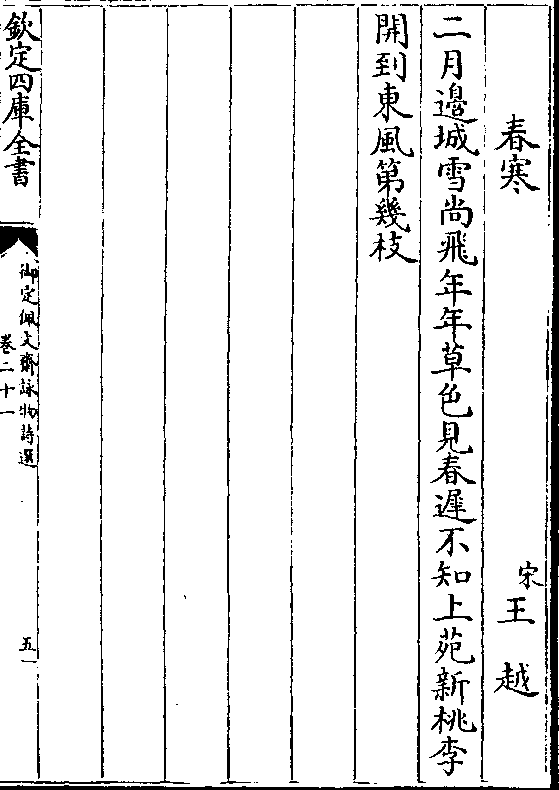 春寒
宋王越
二月邊城雪尚飛年年草色見春遲不知上苑新桃李
開到東風第幾枝
欽定四庫全書
御定佩文齋詠物詩選
卷二十一
五